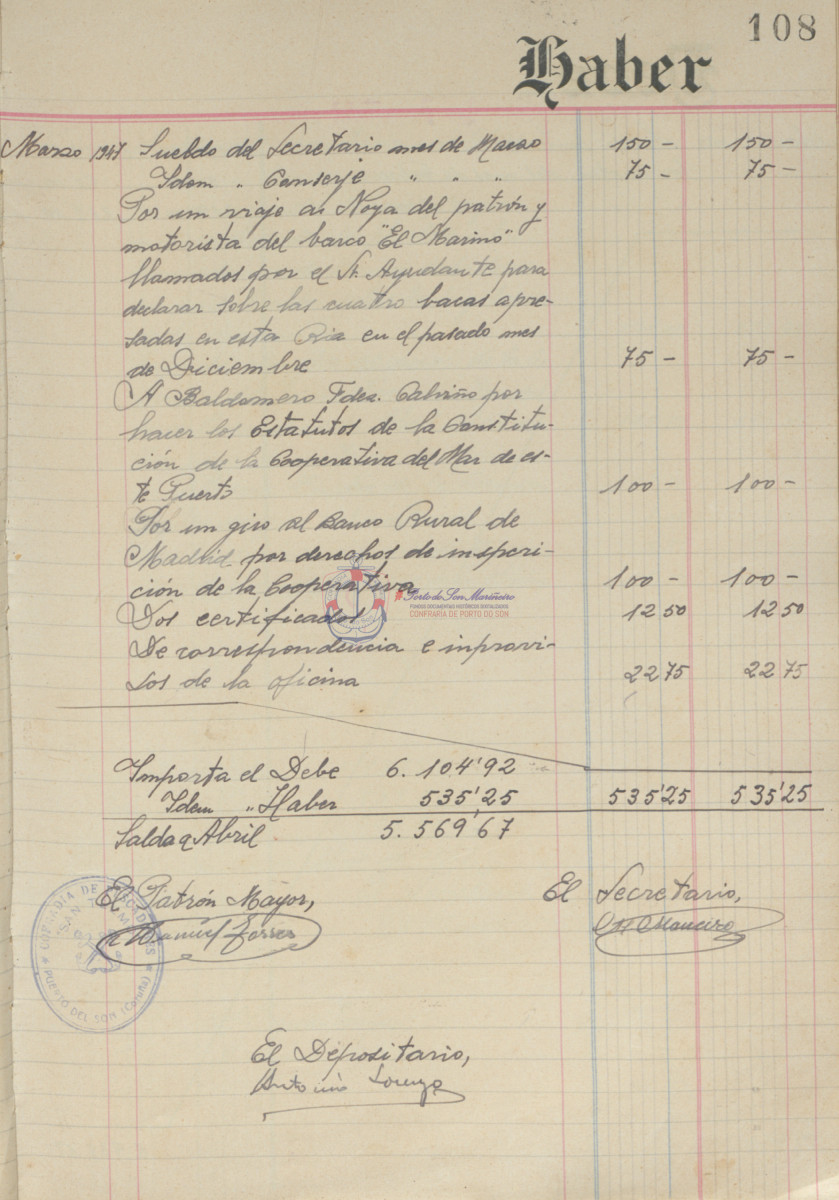 108
Haber
Marzo 1947 Sueldo del Secretario mes de Marzo 150 - 150 -
Idem " Conserje " " " 75 - 75 -
Por un viaje a Noya del patrón y
motorista del barco "El Marino"
llamados por el Sr. Ayudante para
declarar sobre las cuatro bacas apre-
sadas en esta Ria en el pasado mes
de Diciembre 75 - 75 -
A Baldomero Fdez. Calviño por
hacer los Estatutos de la Constitu-
ción de la Cooperativa del Mar de es-
te Puerto 100 - 100 -
Por un giro al Banco Rural de
Madrid por derechos de insperi-
ción de la Cooperativa 100 - 100 -
Porto do Son Mariñeiro
FONDOS DOCUMENTAIS HISTÓRICOS DIXITALIZADOS
CONFRARÍA DE PORTO DO SON
Dos certificados 12 50 12 50
De correspondencia e inprovi-
sos de la oficina 22 75 22 75
Importa el Debe 6.104'92
Idem " Haber 535'25 535'25 535'25
Salda a Abril 5.569'67
El Patrón Mayor, El Secretario,
Manuel
COFRADIA DE PESCADORES
SAN TELMO
PUERTO DEL SON (Coruña)
El Depositario,
Antonio Lorenzo